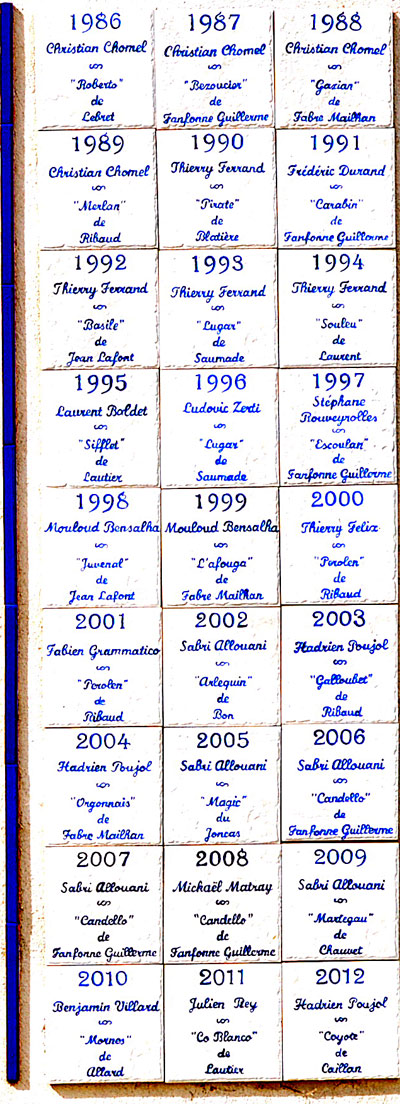 1986
Christian Chomel
"Roberto"
de
Lebret
1987
Christian Chomel
"Bezoucier"
de
Fanfonne Guillerme
1988
Christian Chomel
"Gazian"
de
Fabre Mailhan
1989
Christian Chomel
"Merlan"
de
Ribaud
1990
Thierry Ferrand
"Pirate"
de
Blatière
1991
Frédéric Durand
"Carabin"
de
Fanfonne Guillerme
1992
Thierry Ferrand
"Basile"
de
Jean Lafont
1993
Thierry Ferrand
"Lugar"
de
Saumade
1994
Thierry Ferrand
"Souleu"
de
Laurent
1995
Laurent Boldet
"Sifflet"
de
Lautier
1996
Ludovic Zerti
"Lugar"
de
Saumade
1997
Stéphane
Rouveyrolles
"Escoulan"
de
Fanfonne Guillerme
1998
Mouloud Bensalha
"Juvenal"
de
Jean Lafont
1999
Mouloud Bensalha
"L'afouga"
de
Fabre Mailhan
2000
Thierry Felix
"Perolen"
de
Ribaud
2001
Fabien Grammatico
"Perolen"
de
Ribaud
2002
Sabri Allouani
"Arlequin"
de
Bon
2003
Hadrien Poujol
"Galloubet"
de
Ribaud
2004
Hadrien Poujol
"Orgonnais"
de
Fabre Mailhan
2005
Sabri Allouani
"Magic"
du
Joncas
2006
Sabri Allouani
"Candello"
de
Fanfonne Guillerme
2007
Sabri Allouani
"Candello"
de
Fanfonne Guillerme
2008
Michaël Matray
"Candello"
de
Fanfonne Guillerme
2009
Sabri Allouani
"Martegau"
de
Chauvet
2010
Benjamin Villard
"Mornes"
de
Allard
2011
Julien Rey
"Co Blanco"
de
Lautier
2012
Hadrien Poujol
"Coyote"
de
Caillan